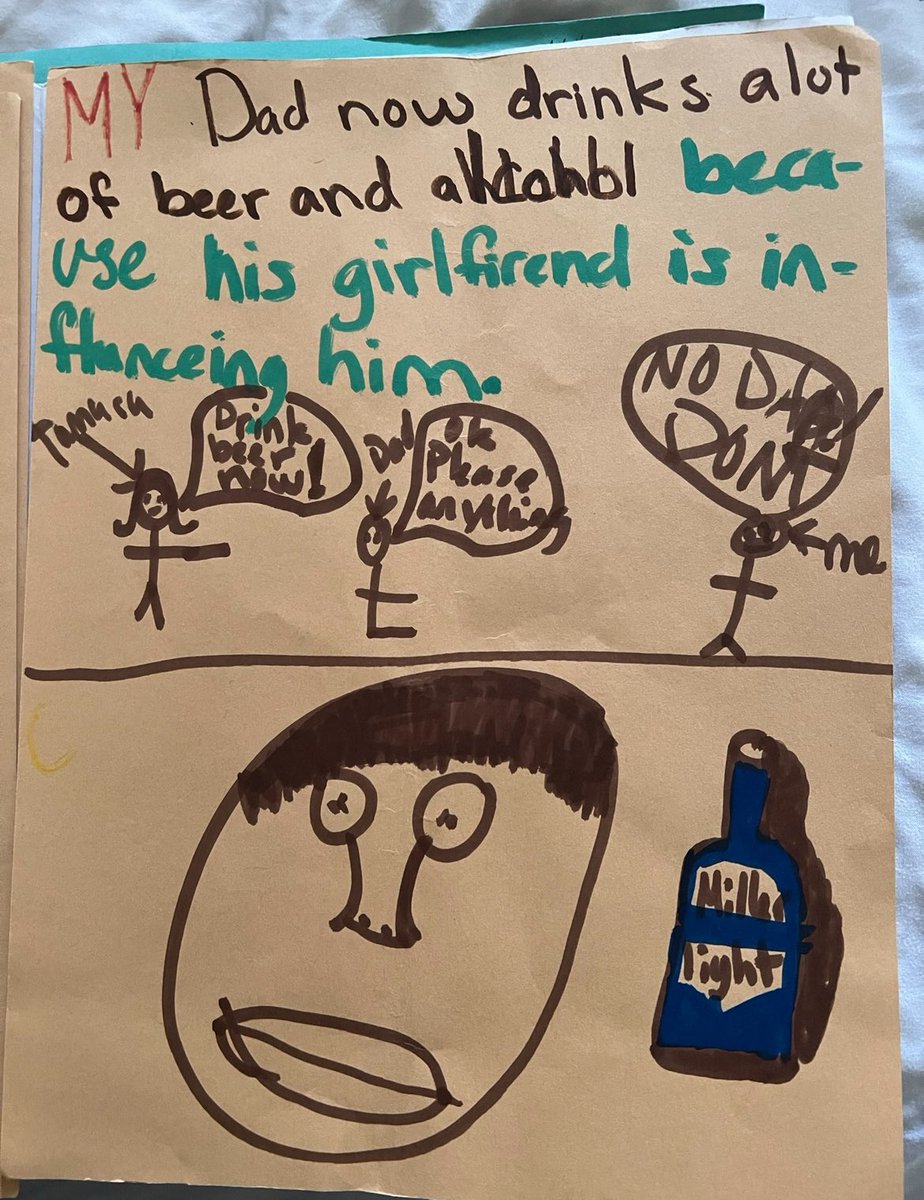 MY Dad now drinks alot
of beer and
beca-
use his girlfirend is in-
flunceing him.
Drink
beer
now!
Dad
ok
Please
anything
NO
DONT
me
light